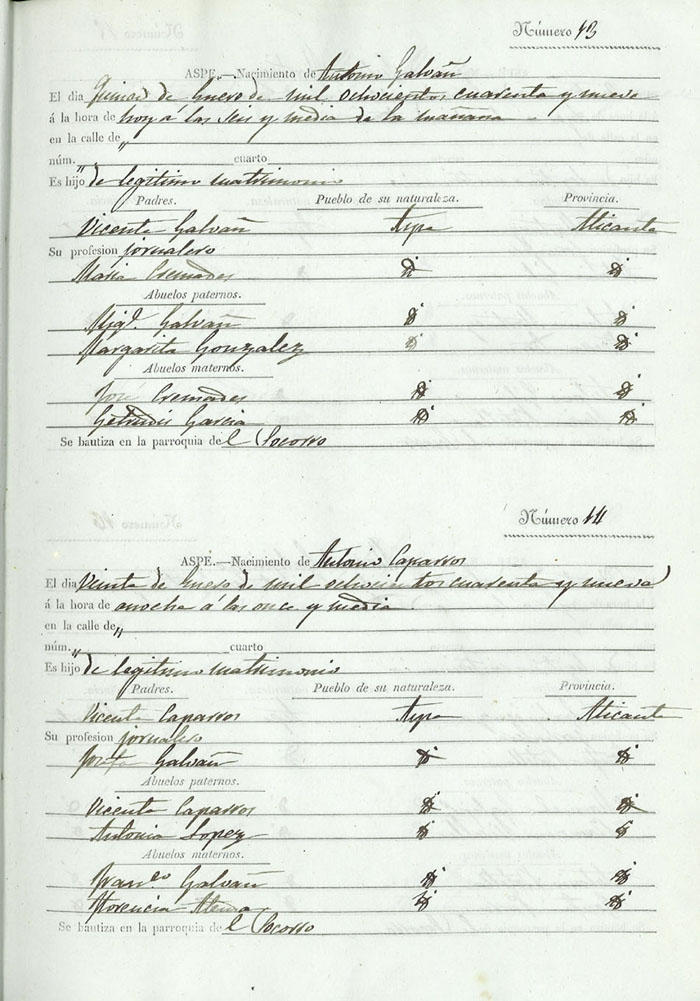 Número 43
ASPE.—Nacimiento de Antonio Galvañ
El dia Quince de Enero de mil ochocientos cuarenta y nueve
á la hora de hoy á las seis y media de la mañana
en la calle de "
núm. " cuarto
Es hijo de legitimo matrimonio
Padres. Pueblo de su naturaleza. Provincia.
Vicente Galvañ Aspe Alicante
Su profesion jornalero
Maria Cremades id id
Abuelos paternos.
Migl. Galvañ id id
Margarita Gonzalez id id
Abuelos maternos.
José Cremades id id
Getrudis Garcia id id
Se bautiza en la parroquia de l Socorro
Número 44
ASPE.—Nacimiento de Antonio Caparros
El dia Veinte de Enero de mil ochocientos cuarenta y nueve
á la hora de anoche á las once y media
en la calle de "
núm. " cuarto
Es hijo de legitimo matrimonio
Padres. Pueblo de su naturaleza. Provincia.
Vicente Caparros Aspe Alicante
Su profesion jornalero
Josefa Galvañ id id
Abuelos paternos.
Vicente Caparros id id
Antonia Lopez id id
Abuelos maternos.
Franco Galvañ id id
Florencia id id
Se bautiza en la parroquia de l Socorro